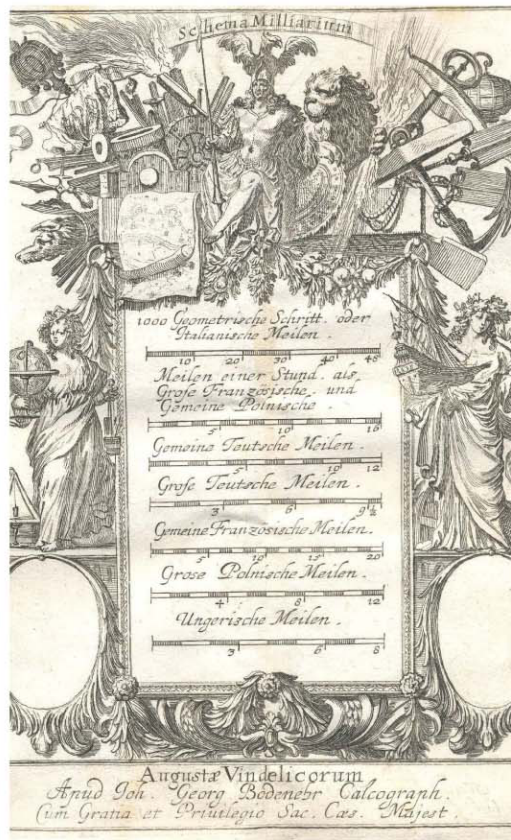 Schema Milliarium
1000 Geometrische Schritt. oder
Italianische Meilen.
10 20 30 40 48
Meilen einer Stund. als
Große Französische und
Gemeine Polnische.
5 10 16
Gemeine Teutsche Meilen.
5 10 12
Große Teutsche Meilen.
3 6 9½
Gemeine Französische Meilen.
5 10 15 20
Grose Polnische Meilen.
4 8 12
Ungerische Meilen.
3 6 8
Augustæ Vindelicorum
Apud Joh. Georg Bodenehr Calcograph.
Cum Gratia et Privilegio Sac. Cæs. Majest.